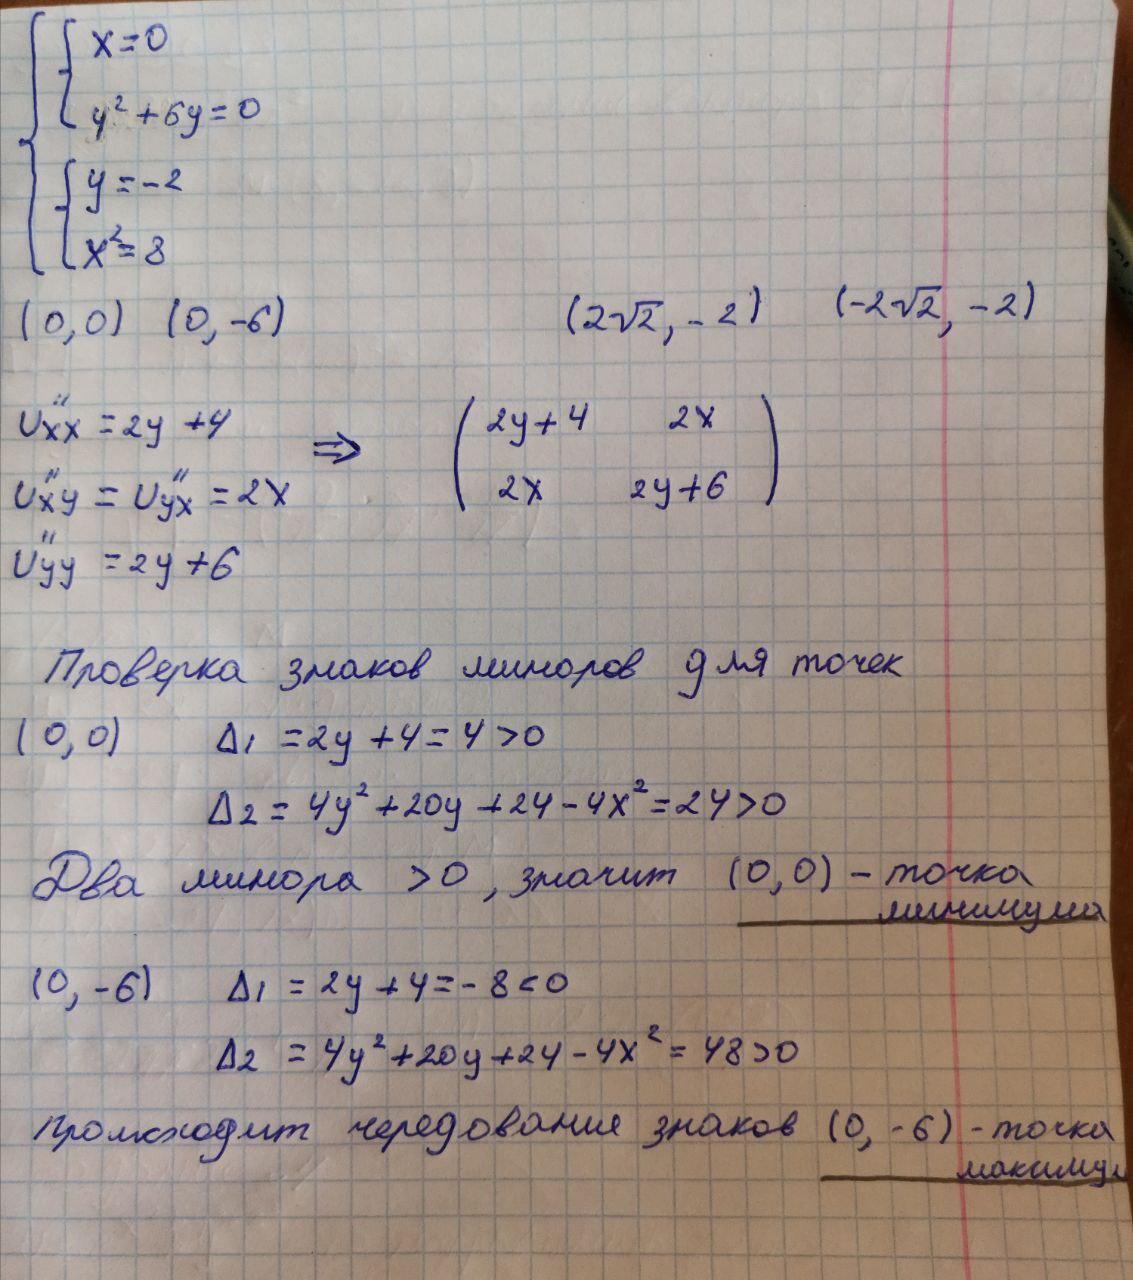 x=0
y²+6y=0
y=-2
x²=8
(0,0) (0,-6) (2√2, -2) (-2√2, -2)
U″xx =2y+4
U″xy = U″yx =2x
U″yy =2y+6
⇒
2y+4 2x
2x 2y+6
Проверка знаков миноров для точек
(0,0) Δ1 =2y+4=4>0
Δ2= 4y²+20y+24-4x²=24>0
Два минора >0, значит (0,0) – точка
минимума
(0,-6) Δ1 =2y+4=-8<0
Δ2 =4y²+20y+24-4x²=48>0
происходит чередование знаков (0,-6) - точка
максимум